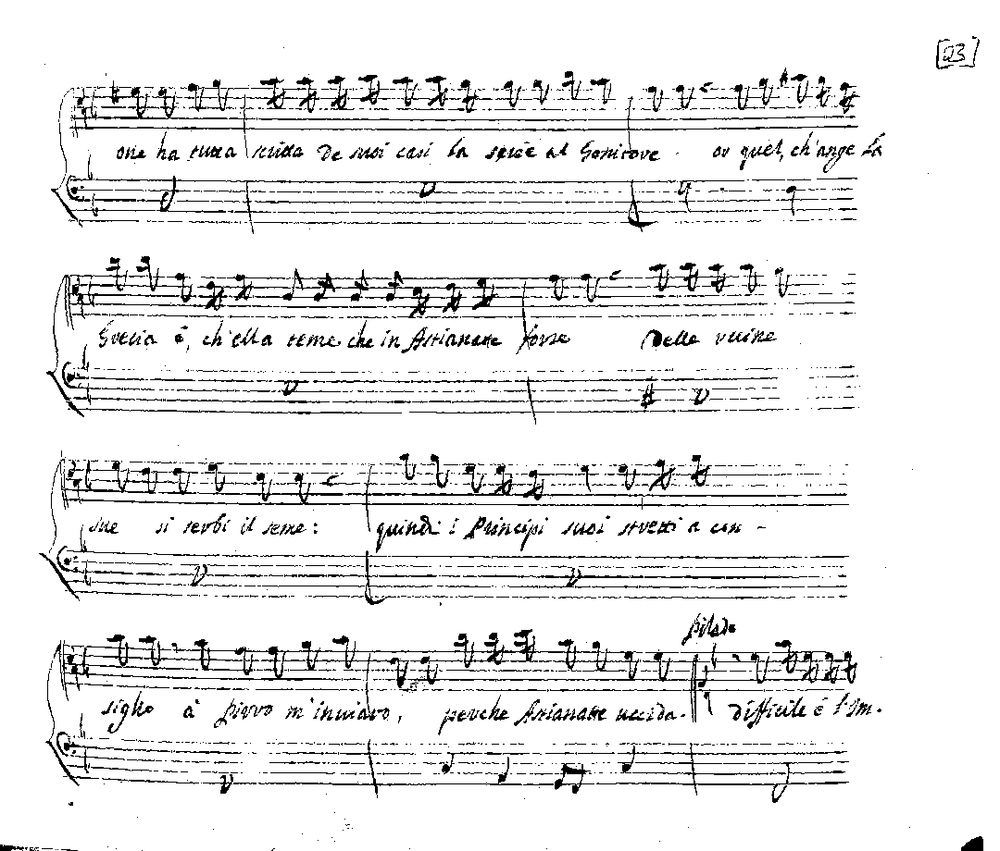 [23]
one ha tutta scritta De suoi casi la serie al Genitore. or quel, ch'ange la
Grecia è, ch'ella teme che in Astianatte forse Delle ruine
sue si serbi il seme: quindi i Principi suoi stretti a con-
Pilade
siglio à Pirro m'inviaro, perche Astianatte uccida. difficile è l'Im-